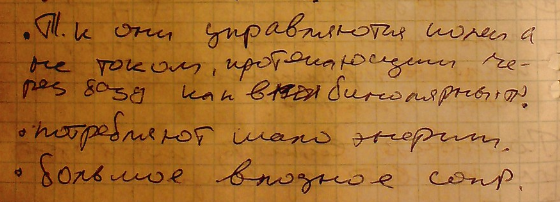 . Т.к они управляются полем а
не током, протекающим че-
рез базу как в биполярных т.
• потребляют мало энергии.
• большое входное сопр.